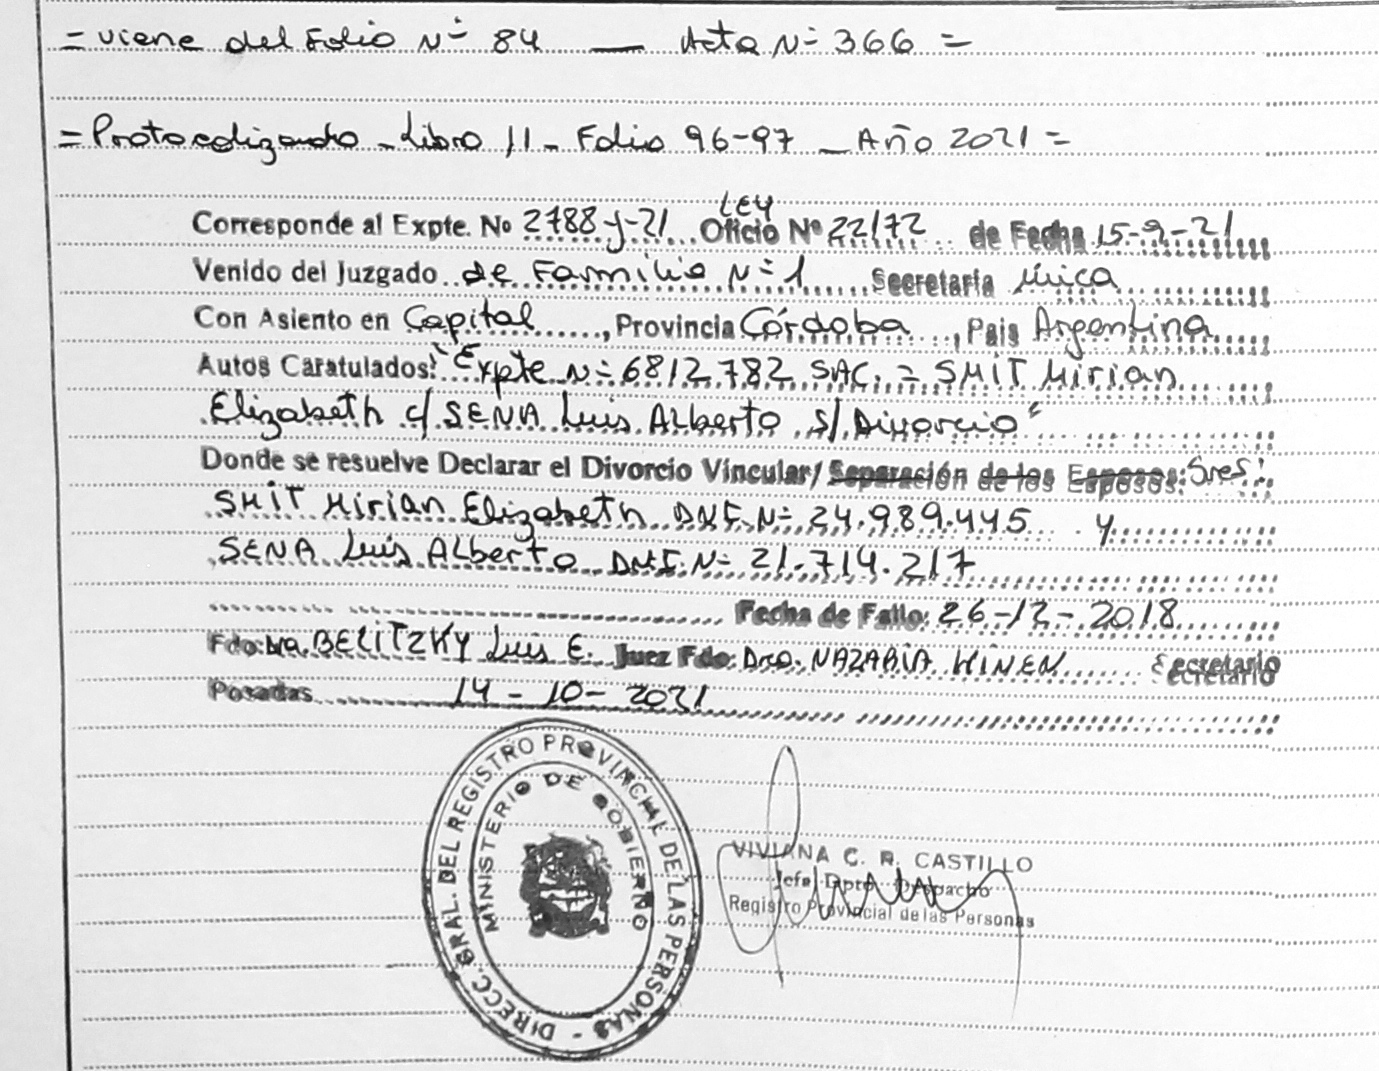 = viene del Folio Nº 84 — Acta Nº 366 =
= Protocolizando - Libro 11 - Folio 96-97 - Año 2021 =
LEY
Corresponde al Expte. No 2788-y-21 Oficio Nº 22172 de Fecha 15-9-21
Venido del Juzgado de Familia Nº 1 Secretaria única
Con Asiento en Capital, Provincia Córdoba, Pais Argentina
Autos Caratulados: "Expte Nº 6812782 SAC. = SMIT Mirian
Elizabeth c/ SENA Luis Alberto s/ Divorcio"
Donde se resuelve Declarar el Divorcio Vincular/ Separación de los Esposos: Sres:
SMIT Mirian Elizabeth DNI. Nº 24.989.445 y
SENA Luis Alberto DNI. Nº 21.714.217
Fecha de Fallo: 26-12-2018
Fdo: BELITZKY Luis E. Juez Fdo: Dra. NAZARIA KINEN Secretario
Posadas 14-10-2021
DIRECC. GRAL. DEL REGISTRO PROVINCIAL DE LAS PERSONAS -
MINISTERIO DE GOBIERNO
VIVIANA C. R. CASTILLO
Jefa Dpto Despacho
Registro Provincial de las Personas